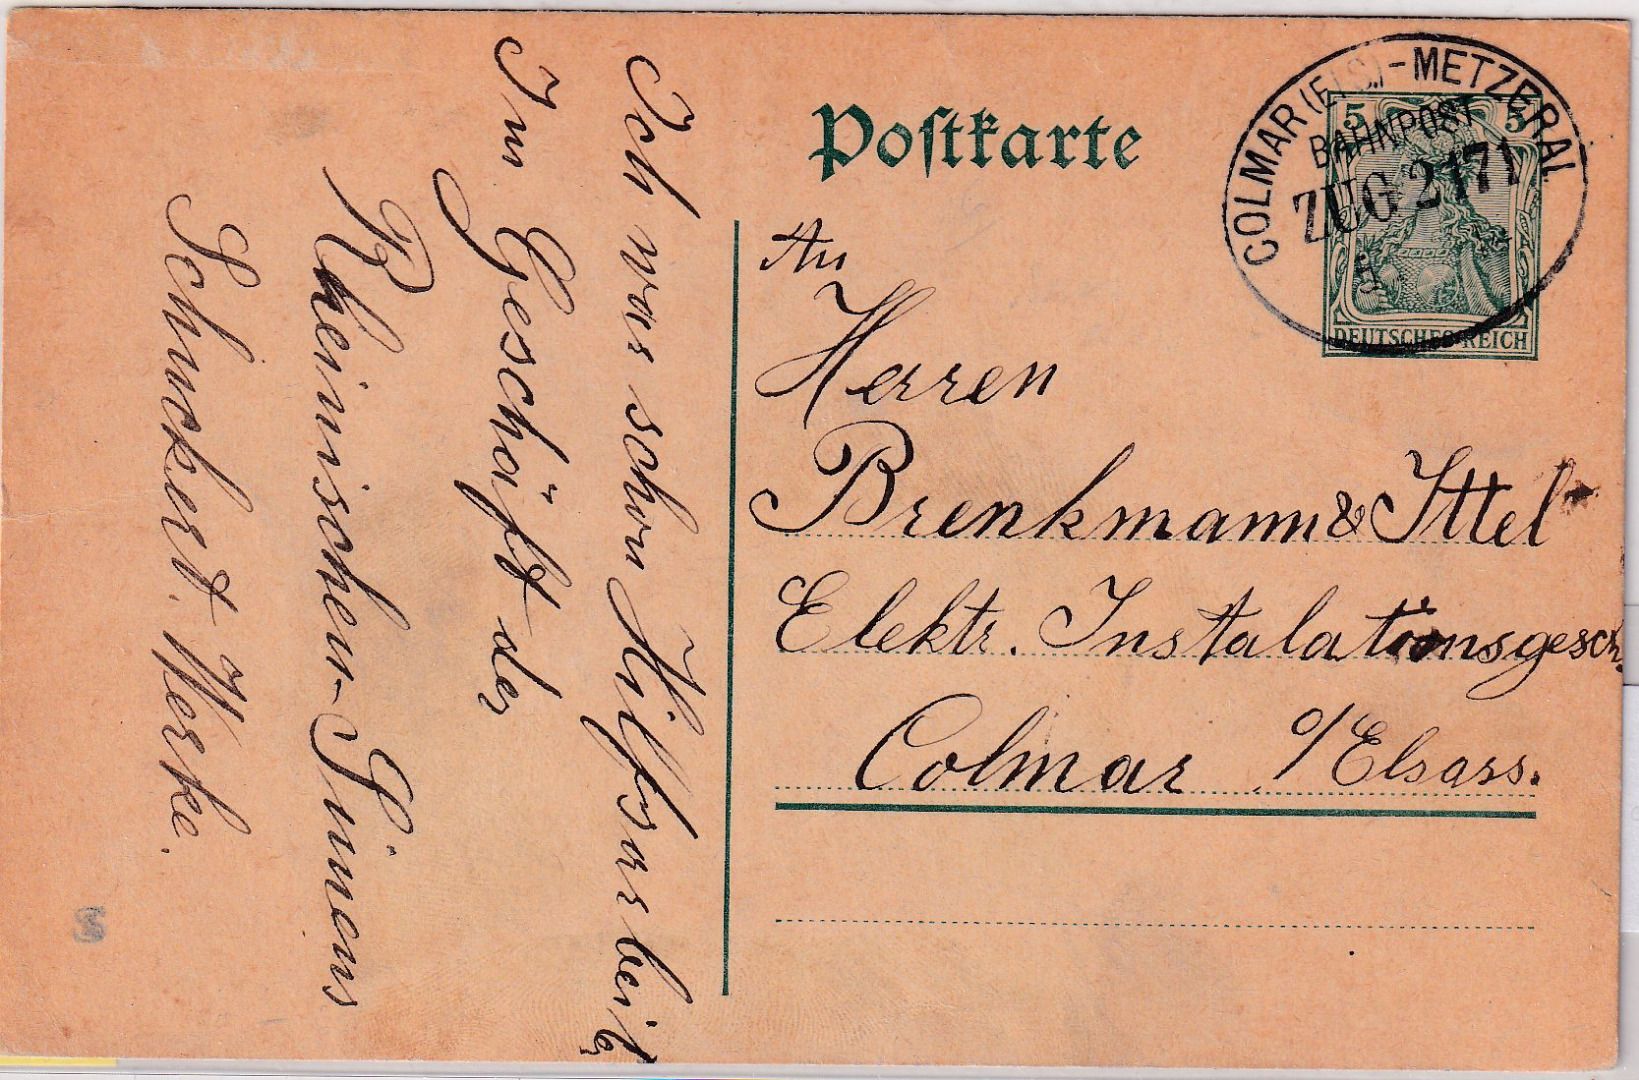 Postkarte
COLMAR (ELS.) - METZERAL
BAHNPOST
ZUG 2171
5
5 5
DEUTSCHES REICH
An
Herren
Brenkmann & Ittel
Elektr. Instalationsgesch.
Colmar i/Elsass.
Ich war schon Hilfsarbeiter
Im Geschäft der
Rheinischen-Simens
Schuckert. Werke.
S